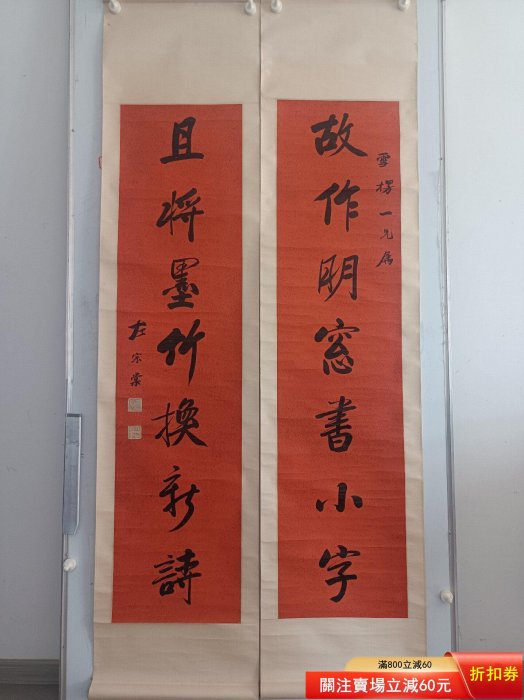 雪樓一兄屬
故作明窓書小字
且將墨竹換新詩
左宗棠
滿800立減60
關注賣場立減60元
折扣券